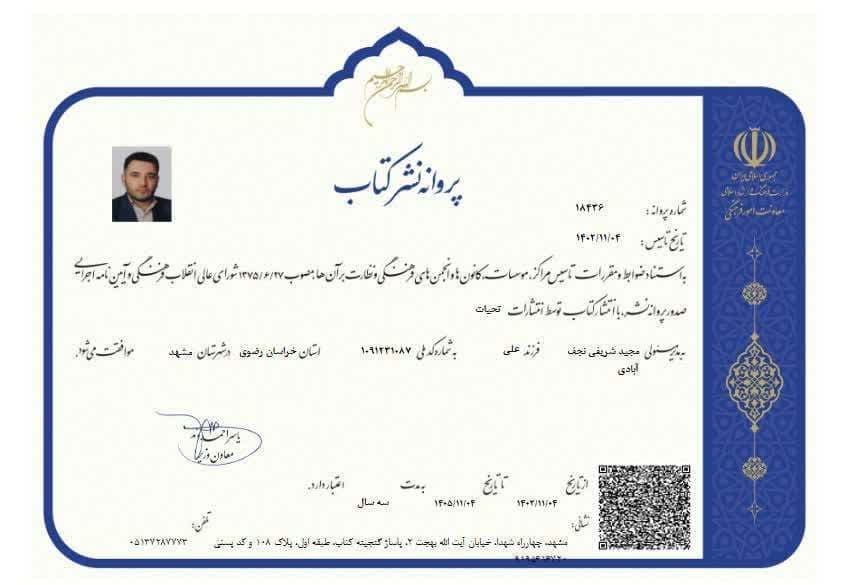 بسم الله الرحمن الرحیم
جمهوری اسلامی ایران
وزارت فرهنگ و ارشاد اسلامی
معاونت امور فرهنگی
پروانه نشر کتاب
شماره پروانه: ۱۸۴۳۶
تاریخ تاسیس: ۱۴۰۲/۱۱/۰۴
به استناد ضوابط و مقررات تاسیس مراکز، موسسات، کانون ها و انجمن های فرهنگی و نظارت بر آن ها مصوب ۱۳۷۵/۶/۲۷ شورای عالی انقلاب فرهنگی و آیین نامه اجرایی
صدور پروانه نشر، با انتشار کتاب توسط انتشارات تحیات
به مدیر مسئولی مجید شریفی نجف آبادی فرزند علی به شماره کد ملی ۱۰۹۱۲۳۱۰۸۷ استان خراسان رضوی در شهرستان مشهد موافقت می شود.
یاسر احمدوند
معاون وزیر
از تاریخ ۱۴۰۲/۱۱/۰۴ تا تاریخ ۱۴۰۵/۱۱/۰۴ به مدت سه سال اعتبار دارد.
نشانی: مشهد، چهارراه شهدا، خیابان آیت الله بهجت ۲، پاساژ گنجینه کتاب، طبقه اول، پلاک ۱۰۸ و کد پستی
تلفن: ۰۵۱۳۷۲۸۷۷۷۳